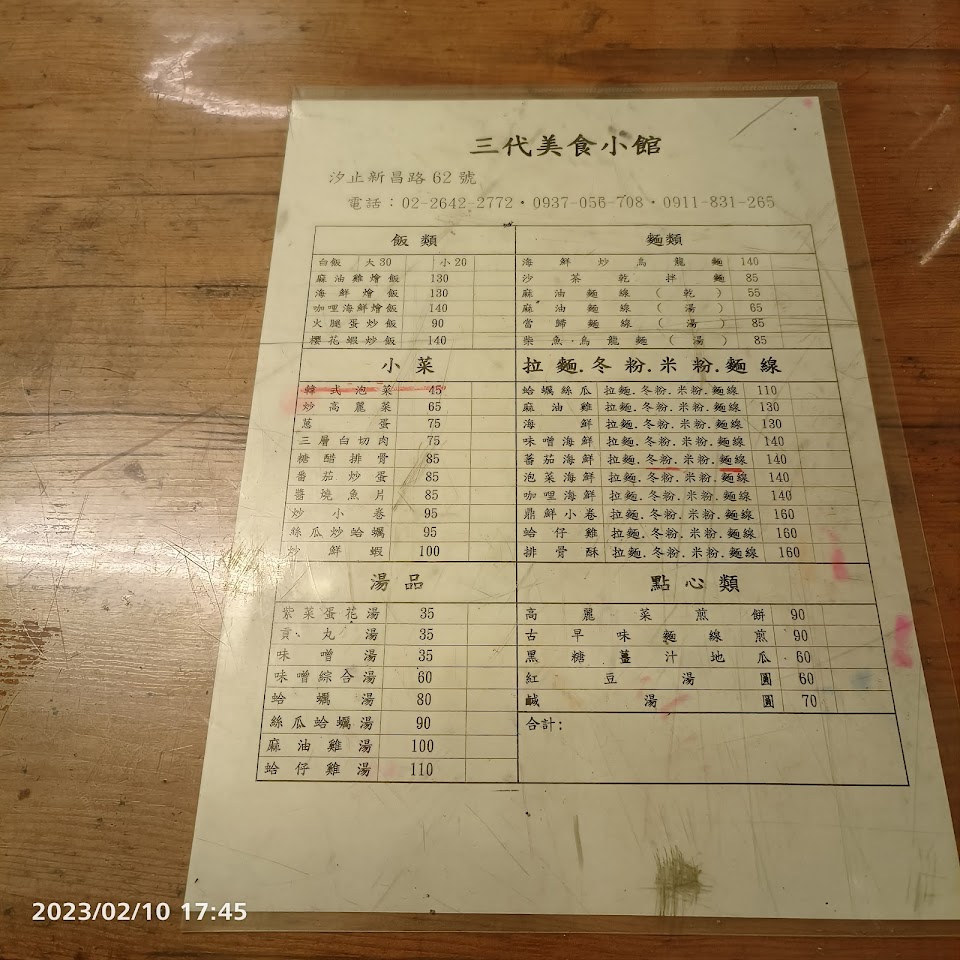 三代美食小館
汐止新昌路 62 號
電話：02-2642-2772・0937-056-708・0911-831-265
飯類
白飯 大30 小20
麻油雞燴飯 130
海鮮燴飯 130
咖哩海鮮燴飯 140
火腿蛋炒飯 90
櫻花蝦炒飯 140
麵類
海鮮炒烏龍麵 140
沙茶乾拌麵 85
麻油麵線(乾) 55
麻油麵線(湯) 65
當歸麵線(湯) 85
柴魚烏龍麵(湯) 85
小菜
韓式泡菜 45
炒高麗菜 65
蔥蛋 75
三層白切肉 75
糖醋排骨 85
番茄炒蛋 85
醬燒魚片 85
炒小卷 95
絲瓜炒蛤蠣 95
炒鮮蝦 100
拉麵.冬粉.米粉.麵線
蛤蠣絲瓜 拉麵.冬粉.米粉.麵線 110
麻油雞 拉麵.冬粉.米粉.麵線 130
海鮮 拉麵.冬粉.米粉.麵線 130
味噌海鮮 拉麵.冬粉.米粉.麵線 140
蕃茄海鮮 拉麵.冬粉.米粉.麵線 140
泡菜海鮮 拉麵.冬粉.米粉.麵線 140
咖哩海鮮 拉麵.冬粉.米粉.麵線 140
鼎鮮小卷 拉麵.冬粉.米粉.麵線 160
蛤仔雞 拉麵.冬粉.米粉.麵線 160
排骨酥 拉麵.冬粉.米粉.麵線 160
湯品
紫菜蛋花湯 35
貢丸湯 35
味噌湯 35
味噌綜合湯 60
蛤蠣湯 80
絲瓜蛤蠣湯 90
麻油雞湯 100
蛤仔雞湯 110
點心類
高麗菜煎餅 90
古早味麵線煎 90
黑糖薑汁地瓜 60
紅豆湯圓 60
鹹湯圓 70
合計:
2023/02/10 17:45